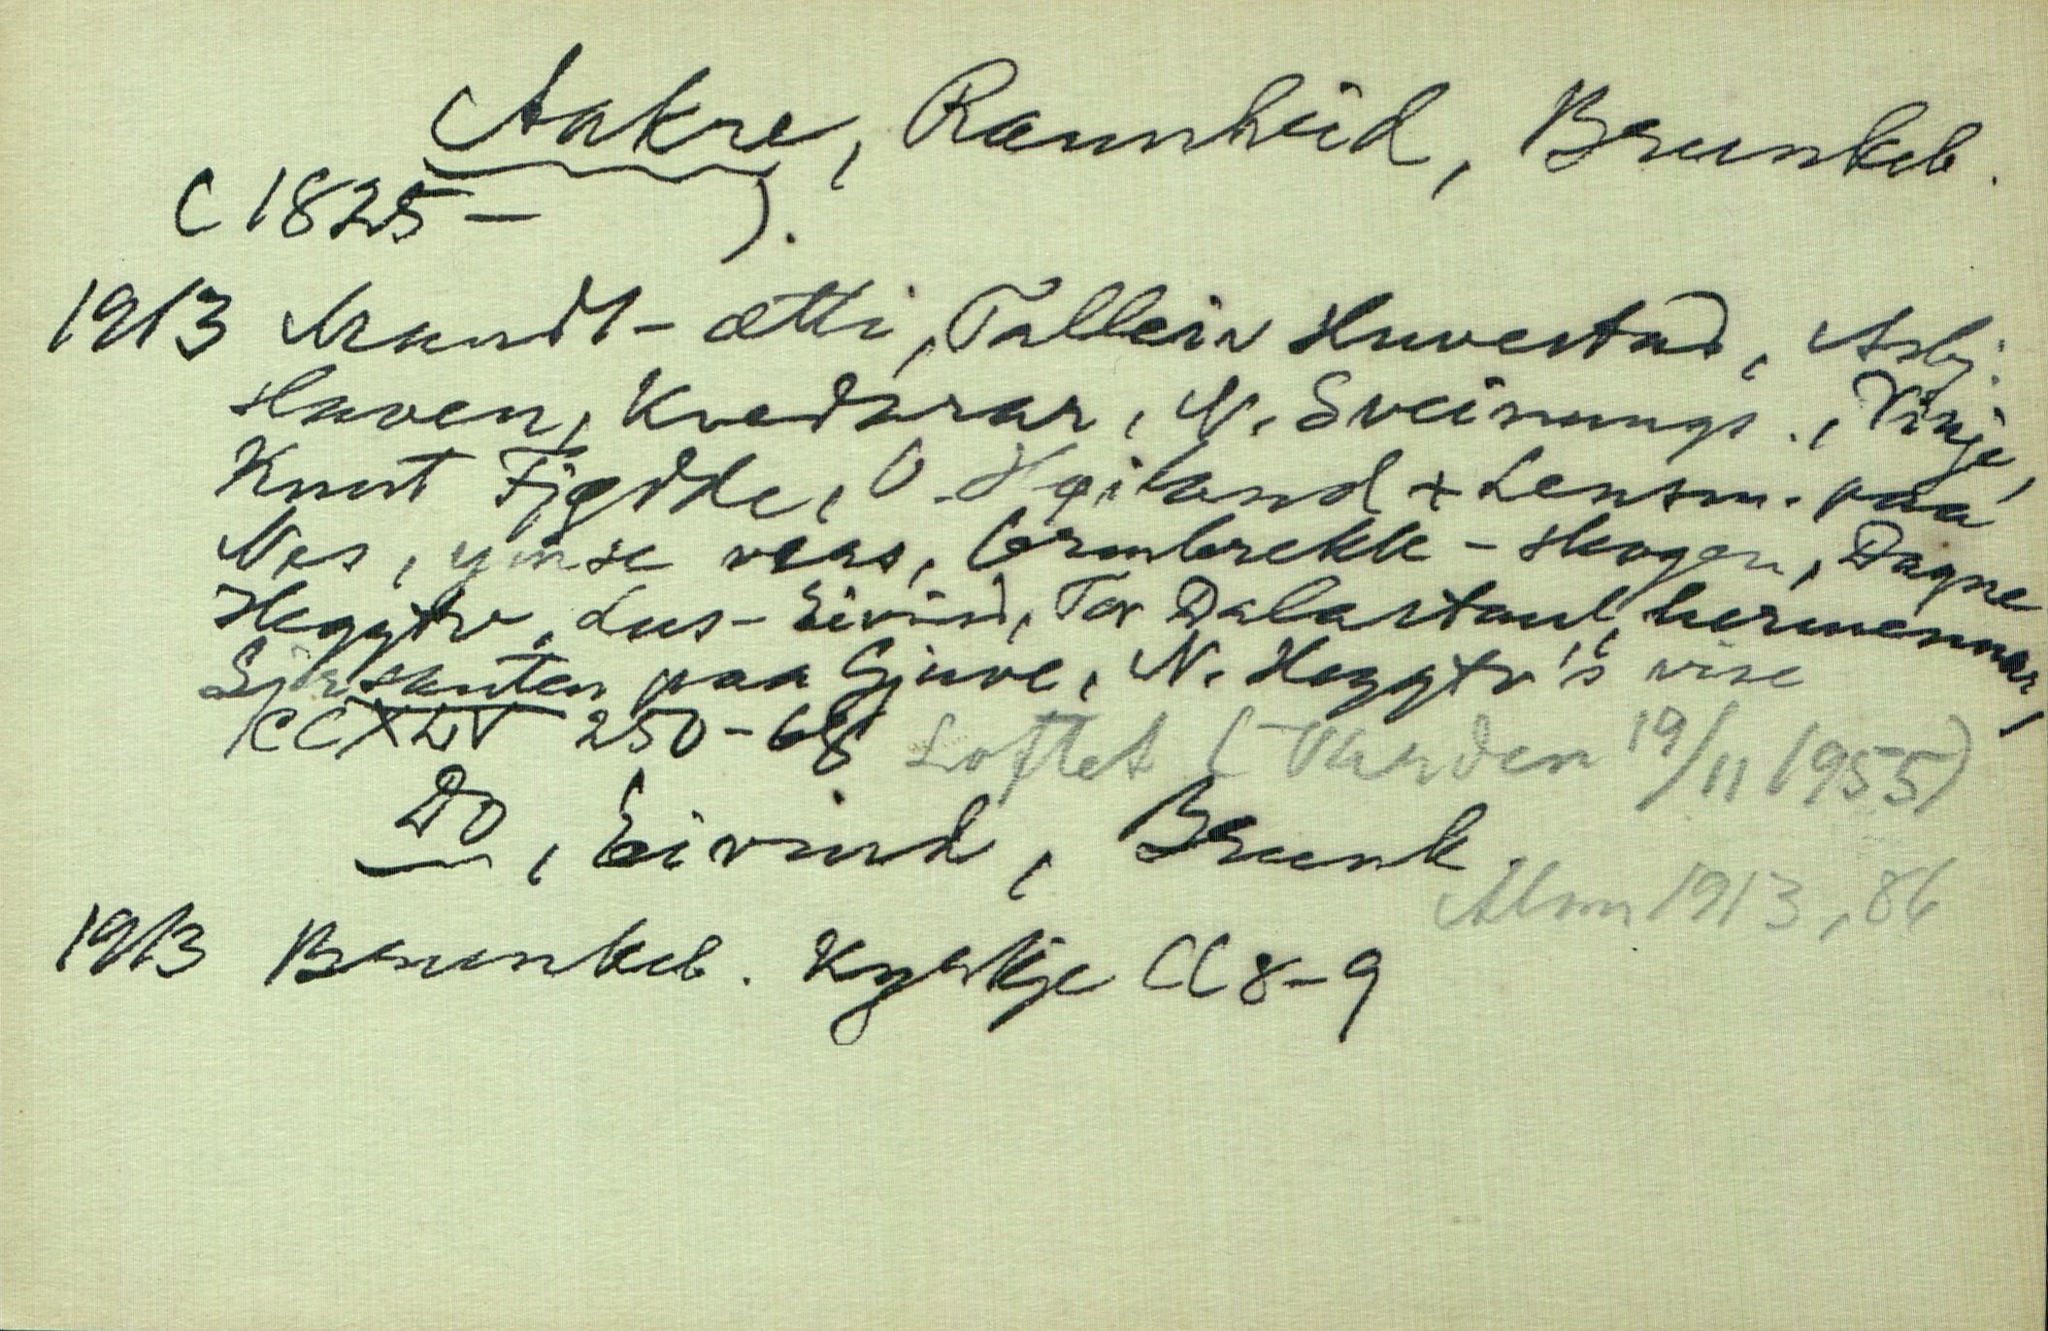 Aakre, Rannheid, Brunkeb.
(1825– ).
1913 Mandt-ætti, Talleiv Huvestad, Asbj.
Haven, Kvedarar, N. Sveinungs., Vinje,
Knut Fjødde, O. Høiland + Lensm. paa
Nes, ymse vers, Ormbrekk-Skogen, Dagne
Heggtv., Lus-Eivind, Tor Dalastaul, hermennar,
paa Gjuve, N. Heggtv's vise
250–68 Loftet (Varden 19/11 1955)
Do, Eivind, Brunk.
1913, 86
1913 Brunkeb. Kyrkje CC 8–9